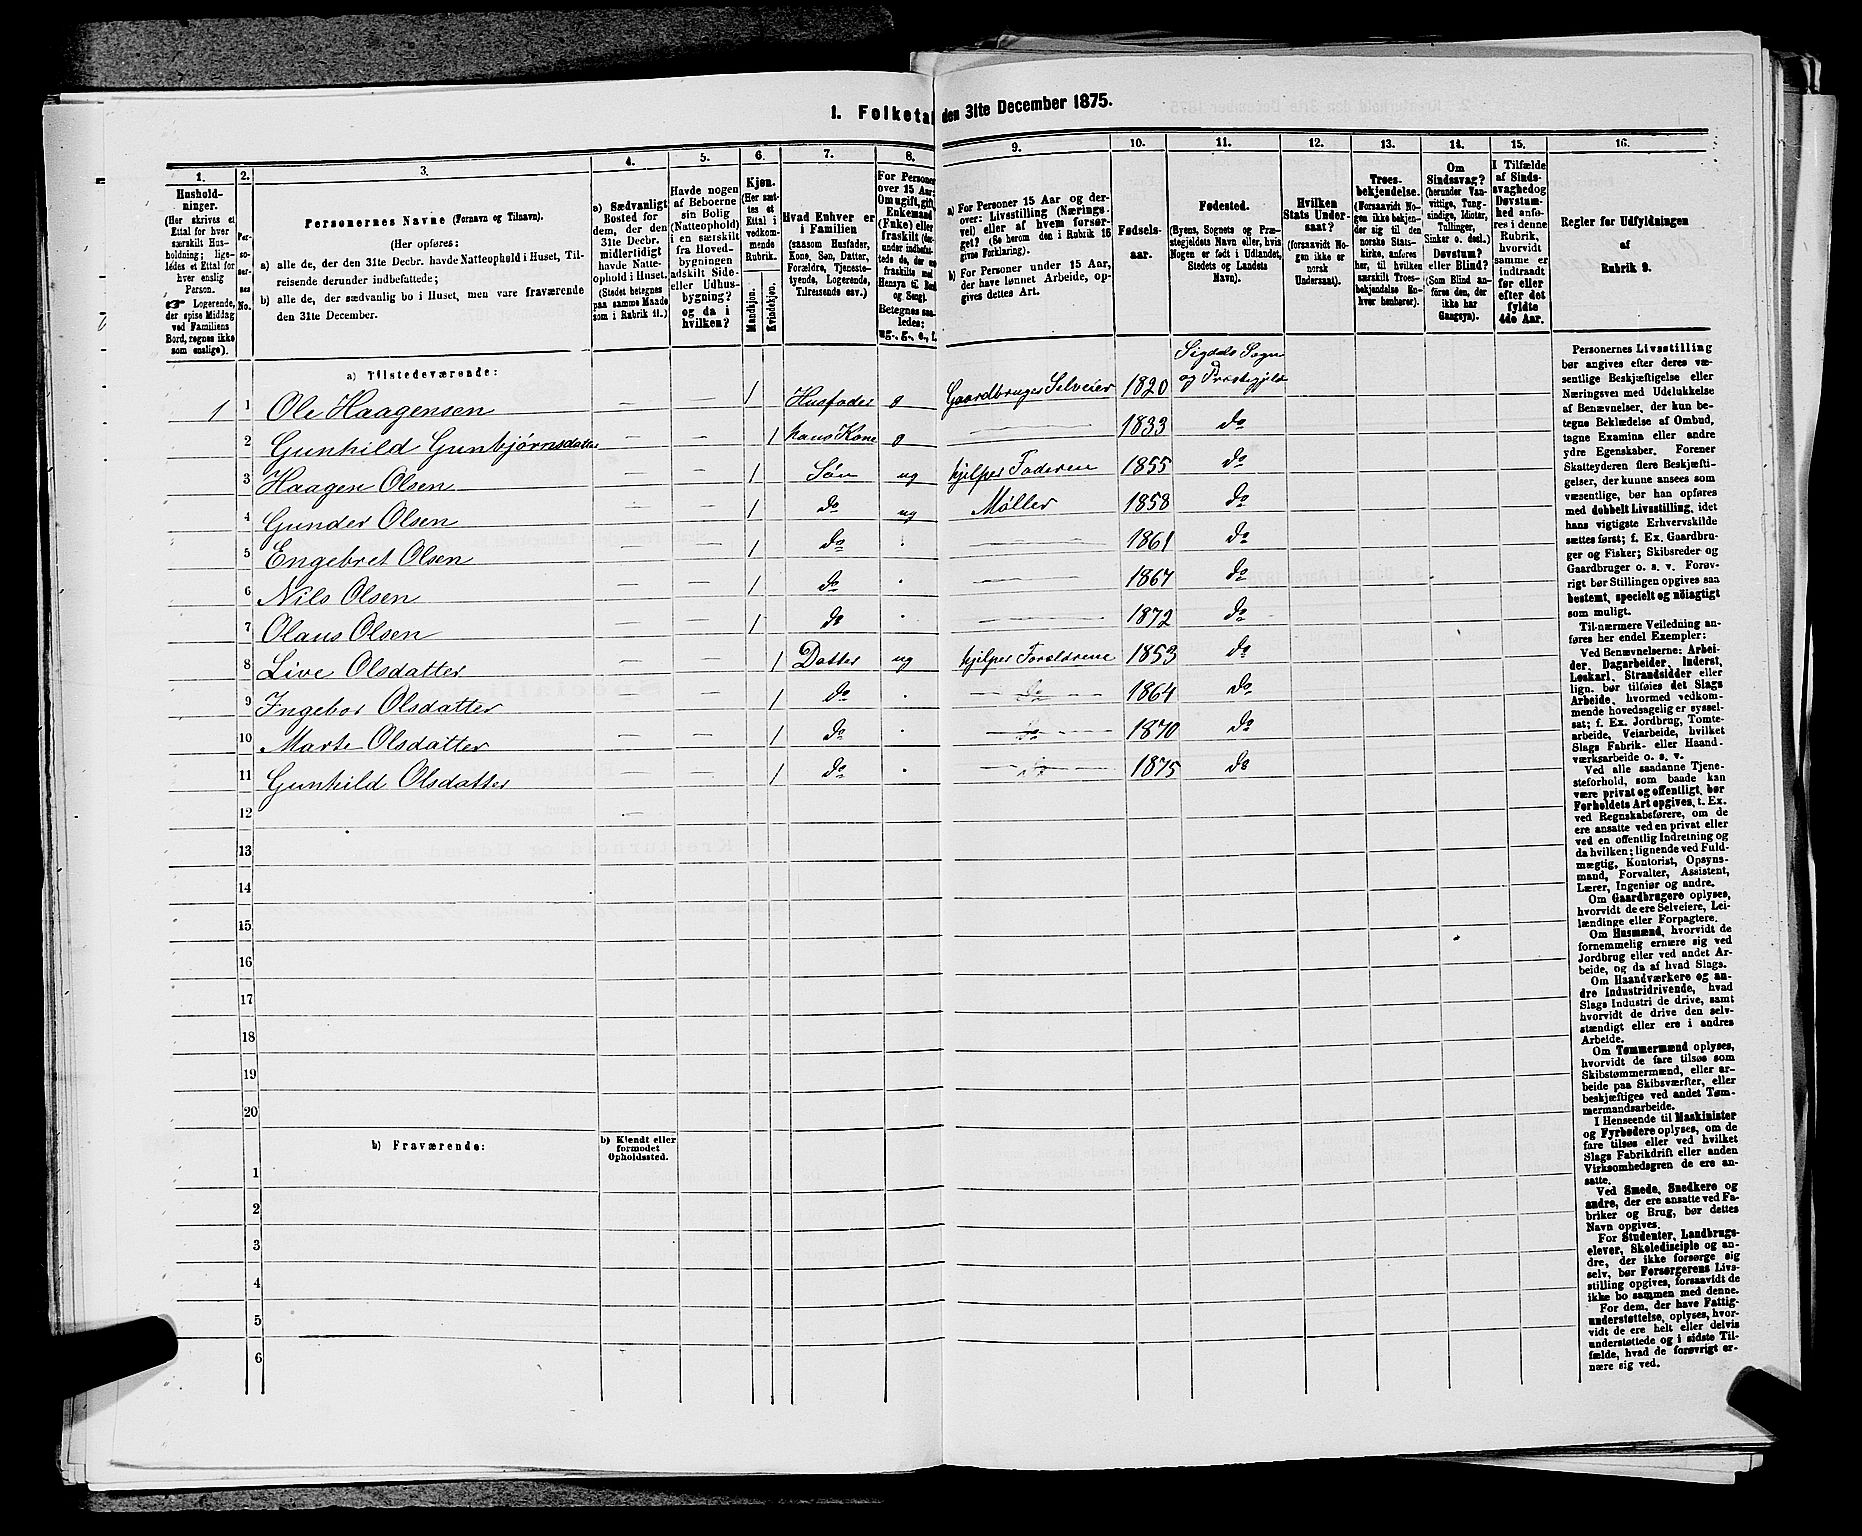 1. Folketal den 31te December 1875.
1. 2. 3. 4. 5. 6. 7. 8. 9. 10. 11. 12. 13. 14. 15. 16.
Husholdninger.
(Her skrives et
Ettal for hver
særskilt Husholdning;
ligeledes et Ettal for
hver enslig
Person.
Logerende,
der spise Middag
ved Familiens
Bord, regnes ikke
som enslige).
Personernes No.
Personernes Navne (Fornavn og Tilnavn).
(Her opføres:
a) alle de, der den 31te Decbr. havde Natteophold i Huset, Tilreisende derunder indbefattede;
b) alle de, der sædvanlig bo i Huset, men vare fraværende
den 31te December.
a) Sædvanligt
Bosted for
dem, der den
31te Decbr.
midlertidigt
havde Natteophold i Huset.
(Stedet betegnes
paa samme Maade
som i Rubrik 11.)
Havde nogen
af Beboerne
sin Bolig
(Natteophold)
i en særskilt
fra Hovedbygningen
adskilt Side-
eller Udhusbygning?
og da i
hvilken?
Kjøn.
(Her sættes et
Ettal i
vedkommende
Rubrik.
Mandkjøn.
Kvindekjøn.
Hvad Enhver er
i Familien
(saasom Husfader,
Kone, Søn, Datter,
Forældre, Tjenestetyende, Logerende,
Tilreisende osv.)
For Personer
over 15 Aar:
Om ugift, gift,
Enkemand
(Enke) eller
fraskilt
Betegnes saaledes:
ug., g., e., f.
a) For Personer 15 Aar og derover: Livsstilling (Næringsvei) eller af hvem forsørget? (Se herom den i Rubrik 16
givne Forklaring).
b) For Personer under 15 Aar,
der have lønnet Arbeide, opgives dettes Art.
Fødselsaar.
Fødested.
(Byens, Sognets og Præstegjeldets Navn eller, hvis
Nogen er født i Udlandet,
Stedets og Landets
Navn).
Hvilken
Stats Undersaat?
(forsaavidt Nogen ikke er
norsk
Undersaat).
Troesbekjendelse.
(Forsaavidt Nogen ikke bekjender sig til den
norske Statskirke, anføres
her, til hvilken
særskilt Troesbekjendelse Enhver henhører).
Om
Sindssvag?
(herunder Vanvittige, Tungsindige, Idioter,
Tullinger,
Sinker o. desl.)
Døvstum?
eller Blind?
(Som Blind anføres den, der
ikke har
Gangsyn).
I Tilfælde
af Sindssvaghed og
Døvstumhed anføres i denne
Rubrik,
hvorvidt
samme er
indtraadt
før eller
efter det
fyldte
4de Aar.
Regler for Udfyldningen
af
Rubrik 9.
a) Tilstedeværende:
Sigdals Sogn
og Præstegjeld
1 1 Ole Haagensen — — 1 Husfader g Gaardbruger Selveier 1820
2 Gunhild Gunbjørnsdatter — — 1 hans Kone g — 1833 do
3 Haagen Olsen — — 1 Søn ug hjelper Faderen 1855 do
4 Gunder Olsen — — 1 do ug Møller 1858 do
5 Engebret Olsen — — 1 do — 1861 do
6 Nils Olsen — — 1 do — 1867 do
7 Olaus Olsen — — 1 do — 1872 do
8 Live Olsdatter — — 1 Datter ug hjelper Forældrene 1853 do
9 Ingebor Olsdatter — — 1 do do 1864 do
10 Marte Olsdatter — — 1 do do 1870 do
11 Gunhild Olsdatter — — 1 do do 1875 do
12 —
13
14
15
16
17
18
19
20
b) Fraværende:
b) Kjendt eller
formodet
Opholdssted.
1
2
3
4
5
6
Personernes Livsstilling
bør angives efter deres væsentlige Beskjæftigelse eller
Næringsvei med Udelukkelse
af Benævnelser, der kun betegne Beklædelse af Ombud,
tagne Examina eller andre
ydre Egenskaber. Forener
Skatteyderen flere Beskjæftigelser, der kunne ansees som
væsentlige, bør han opføres
med dobbelt Livsstilling, idet
hans vigtigste Erhvervskilde
sættes først; f. Ex. Gaardbruger og Fisker; Skibsreder og
Gaardbruger o. s. v. Forøvrigt bør Stillingen opgives saa
bestemt, specielt og nöiagtigt
som muligt.
Til nærmere Veiledning anføres her endel Exempler:
Ved Benævnelserne: Arbeider, Dagarbeider, Inderst,
Løskarl, Strandsidder eller
lign. bør tilføies det Slags
Arbeide, hvormed vedkommende hovedsagelig er sysselsat; f. Ex. Jordbrug, Tomtearbeide, Veiarbeide, hvilket
Slags Fabrik- eller Haandværksarbeide o. s. v.
Ved alle saadanne Tjenesteforhold, som baade kan
være privat og offentligt, bør
Forholdets Art opgives, t. Ex.
ved Regnskabsførere, om de
ere ansatte ved en privat eller
ved en offentlig Indretning og
da hvilken; lignende ved Fuldmægtig, Kontorist, Opsynsmand, Forvalter, Assistent,
Lærer, Ingeniør og andre.
Om Gaardbrugere oplyses,
hvorvidt de ere Selveiere, Leilændinge eller Forpagtere.
Om Husmænd, hvorvidt de
fornemmelig ernære sig ved
Jordbrug eller ved andet Arbeide, og da af hvad Slags.
Om Haandværkere og andre Industridrivende, hvad
Slags Industri de drive, samt
hvorvidt de drive den selvstændigt eller ere i andres
Arbeide.
Om Tømmermænd oplyses,
hvorvidt de fare tilsøs som
Skibstømmermænd, eller arbeide paa Skibsværfter, eller
beskjæftiges ved andet Tømmermandsarbeide.
I Henseende til Maskinister
og Fyrbødere oplyses, om de
fare tilsøs eller ved hvilket
Slags Fabrikdrift eller anden
Virksomhedsgren de ere ansatte.
Ved Smede, Snedkere og
andre, der ere ansatte ved Fabriker og Brug, bør dettes
Navn opgives.
For Studenter, Landbrugselever, Skoledisciple og andre, der ikke forsørge sig
selv, bør Forsørgerens Livsstilling opgives, forsaavidt de
ikke bo sammen med denne.
For dem, der have Fattigunderstøttelse, oplyses, hvorvidt de ere helt eller delvis
understøttede og i sidste Tilfælde, hvad de forøvrigt ernære sig ved.